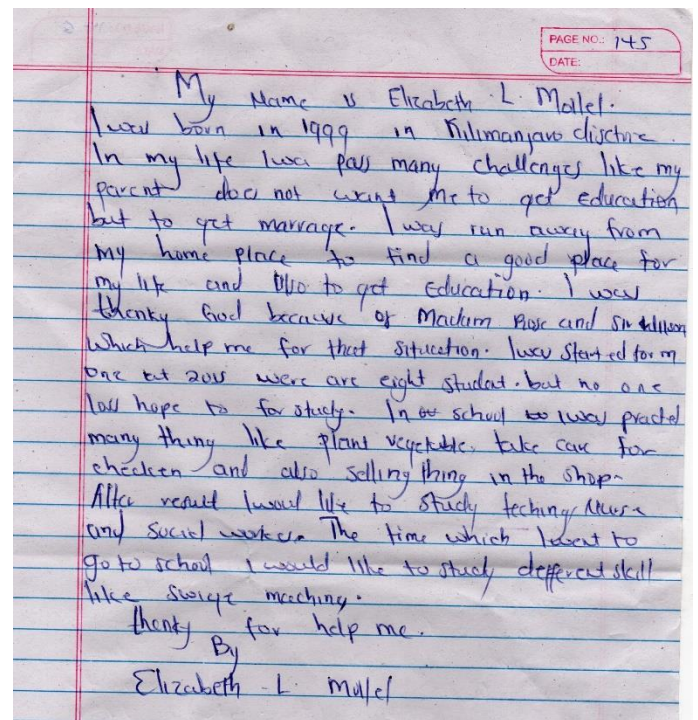 PAGE NO.: 145
DATE:
My Name is Elizabeth L. Mollel.
I was born in 1999 in Kilimanjaro disctric
In my life I wa pass many challenges like my
parent does not want me to get education
but to get marrage. I was run away from
my home place to find a good place for
my life and also to get Education. I was
thenky God because of Madam Rose and Sir Willison
which help me for that situation. I was started form
one at 2015 were are eight student. but no one
loss hope to for study. In school to I was practel
many thing like plant vegetable, take care for
checken and also selling thing in the shop-
After result I woul like to study teching, Nurse
and social worker. The time which I want to
go to school I would like to study defferent skill
like swige maching.
thenky for help me.
By
Elizabeth - L. mollel